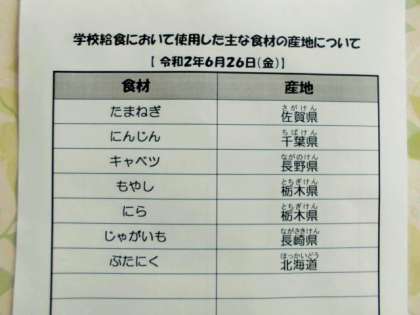 学校給食において使用した主な食材の産地について
【 令和2年6月26日(金)】
食材 産地
たまねぎ 佐賀県 さがけん
にんじん 千葉県 ちばけん
キャベツ 長野県 ながのけん
もやし 栃木県 とちぎけん
にら 栃木県 とちぎけん
じゃがいも 長崎県 ながさきけん
ぶたにく 北海道 ほっかいどう